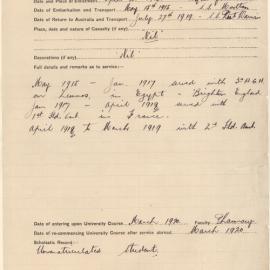 Date of Embarkation and Transport May 15th 1915 - S.S. Mooltan
Date of Return to Australia and Transport July 27th 1919 -
Place, date and nature of Casualty (if any)
"Nil"
Decorations (if any)
"Nil"
Full details and remarks as to service:—
May 1915 - Jan. 1917 served with 3rd A.G.H.
on Lemnos, in Egypt - Brighton England
Jan 1917 - April 1918 served with
1st Std. Amb. in France.
April 1918 to March 1919 with 2nd Std. Amb.
Date of entering upon University Course March 1920 Faculty Pharmacy
Date of re-commencing University Course after service abroad: March 1920
Scholastic Record:
Unmatriculated Student.